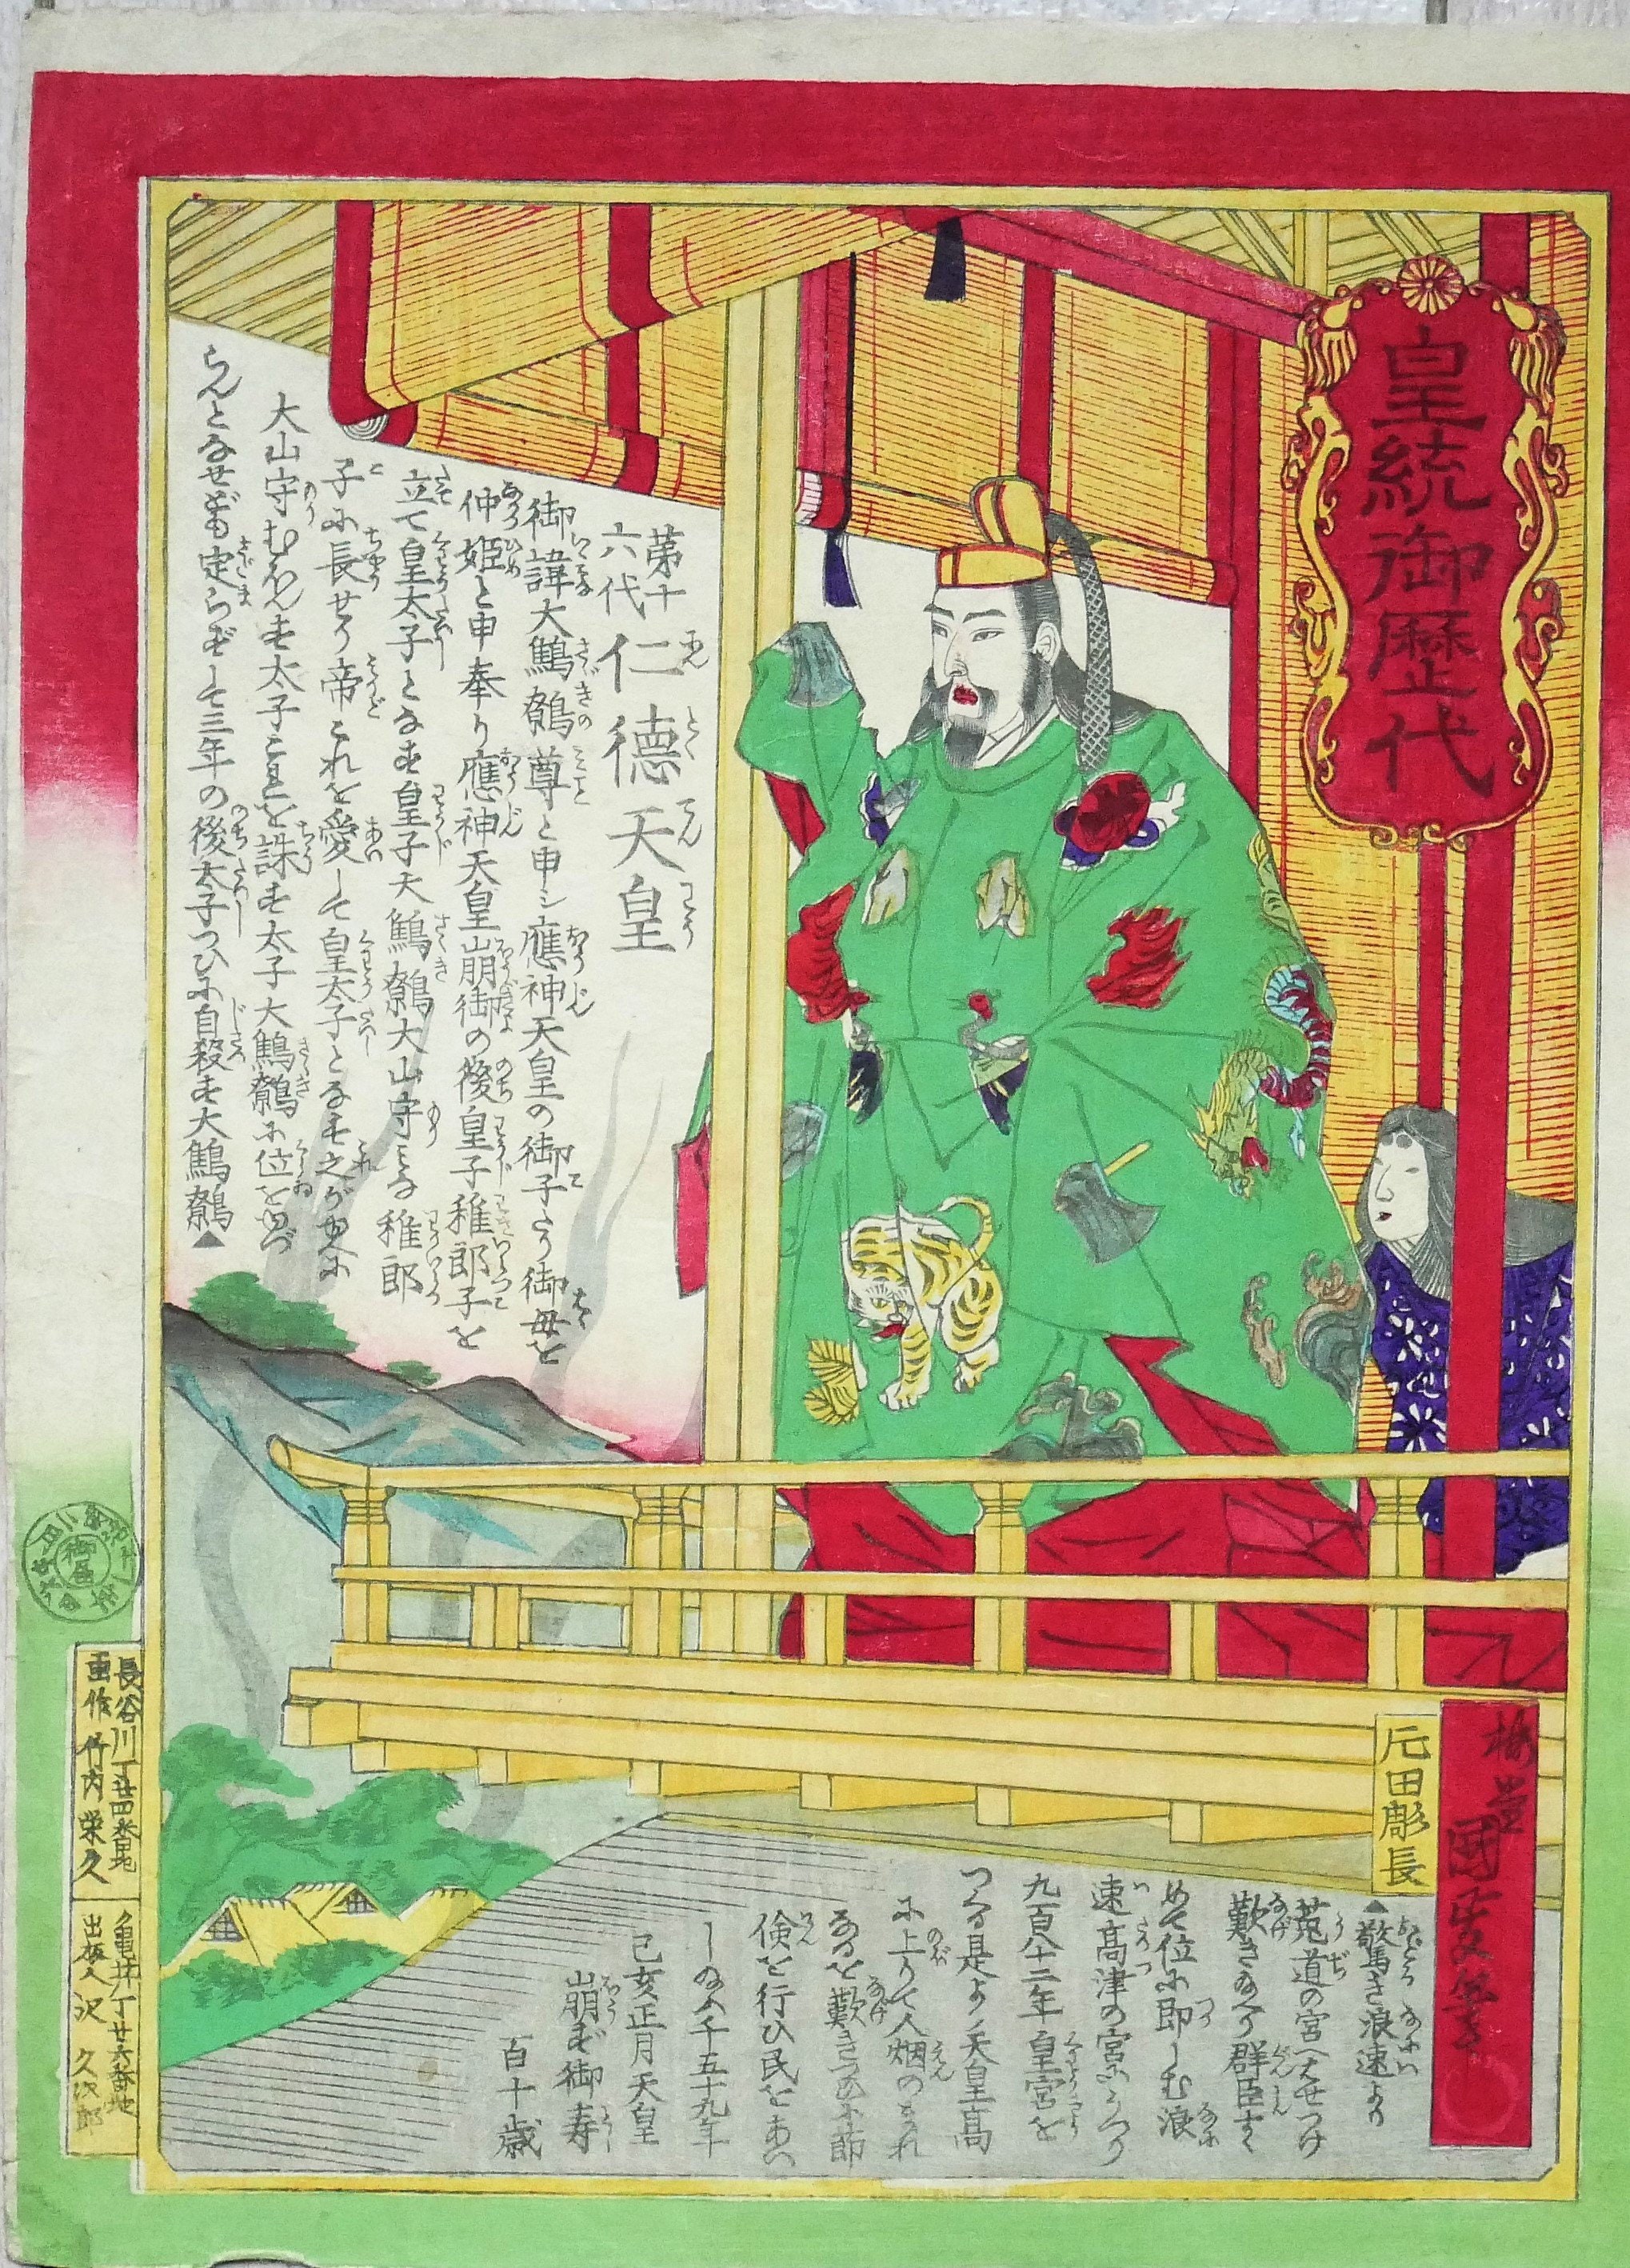 皇統御歴代
第十六代 仁德天皇
御諱大鷦鷯尊と申シ應神天皇の御子にて御母を
仲姫と申奉り應神天皇崩御の後皇子稚郎子を
立て皇太子となす皇子大鷦鷯大山守みな稚郎
子より長せり帝これを愛して皇太子となす之が為に
大山守むほんす太子これを誅す太子大鷦鷯に位をゆづ
らんとなせども定らずして三年の後太子つひに自殺す大鷦鷯▲
▲驚き浪速より
菟道の宮へはせつけ
歎き給へり群臣すゝ
めて位に即しむ浪
速高津の宮にうつり
九百八十二年皇宮を
つくる是より天皇高
に上りて人烟のまれ
なるを歎き給ひ節
倹を行ひ民をあはれ
し給ふ千五十九年
己亥正月天皇
崩ず御寿
百十歳
梅堂國政筆
片田彫長
長谷川丁廿四番地
画作 竹内栄久
亀井丁廿六番地
出板人 沢久次郎
御届